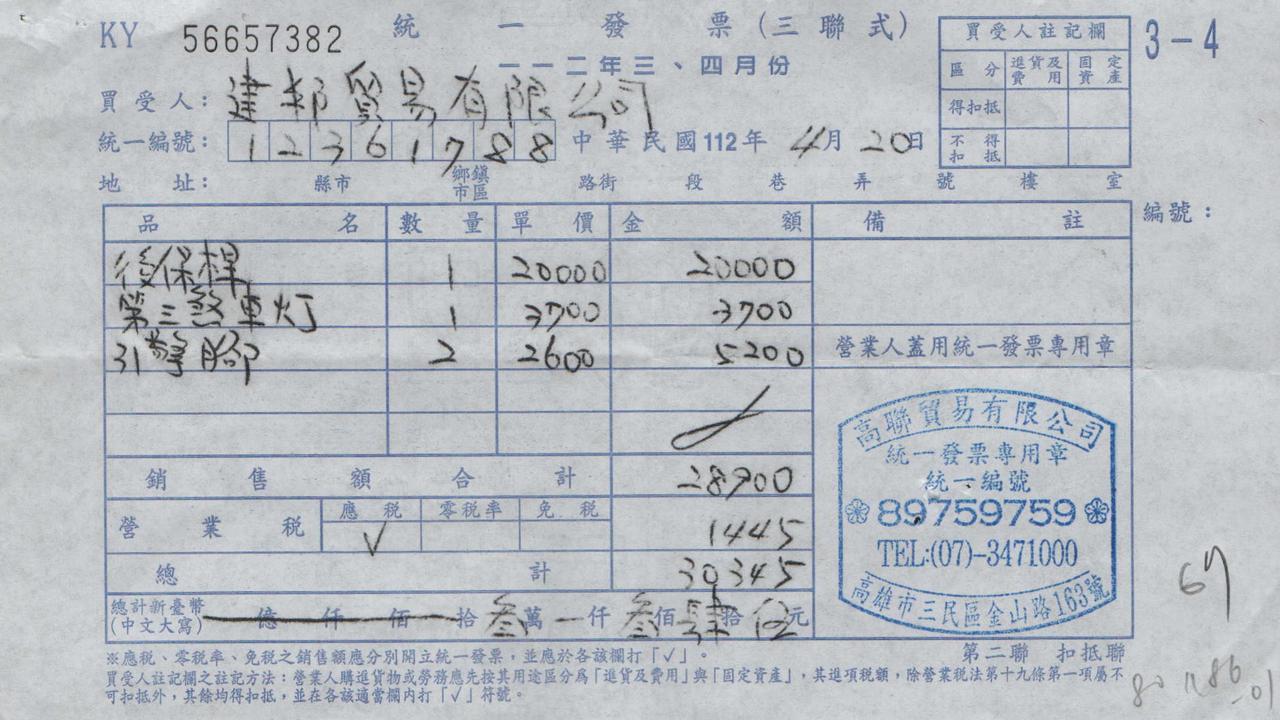 KY 56657382 統一發票(三聯式)
一一二年三、四月份
3-4
買受人註記欄
區分 進貨及費用 固定資產
得扣抵
不得扣抵
買受人: 建邦貿易有限公司
統一編號: 12361788 中華民國112年 4月 20日
地址: 縣市 鄉鎮市區 路街 段 巷 弄 號 樓 室
編號:
品名 數量 單價 金額 備註
後保桿 1 20000 20000
第三煞車灯 1 3700 3700
引擎腳 2 2600 5200
營業人蓋用統一發票專用章
銷售額合計 28900
營業稅 應稅 √ 零稅率 免稅 1445
總計 30345
總計新臺幣(中文大寫) 億 仟 佰 拾 叁萬 一仟 叁佰 肆拾 伍元
高聯貿易有限公司
統一發票專用章
統一編號
89759759
TEL:(07)-3471000
高雄市三民區金山路163號
第二聯 扣抵聯
※應稅、零稅率、免稅之銷售額應分別開立統一發票,並應於各該欄打「√」。
買受人註記欄之註記方法:營業人購進貨物或勞務應先按其用途區分為「進貨及費用」與「固定資產」,其進項稅額,除營業稅法第十九條第一項屬不
可扣抵外,其餘均得扣抵,並在各該適當欄內打「√」符號。